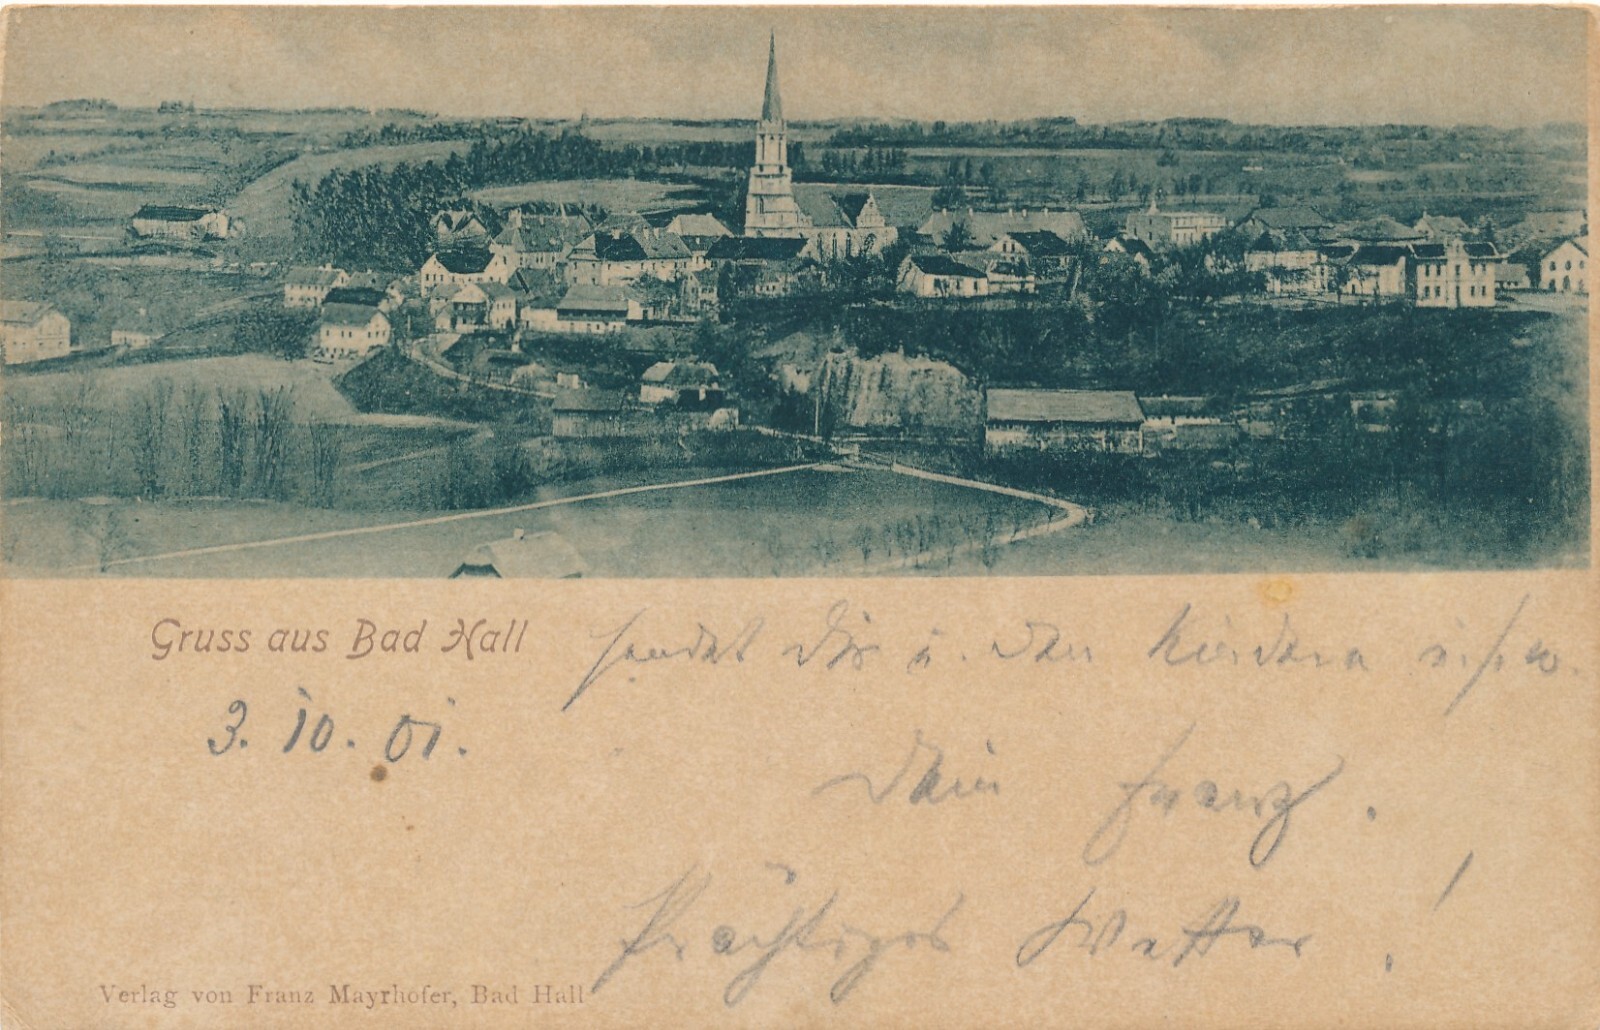 Gruss aus Bad Hall sendet Dir u. den Kindern u.s.w.
3. 10. 01.
Dein Franz.
Prächtiges Wetter!
Verlag von Franz Mayrhofer, Bad Hall